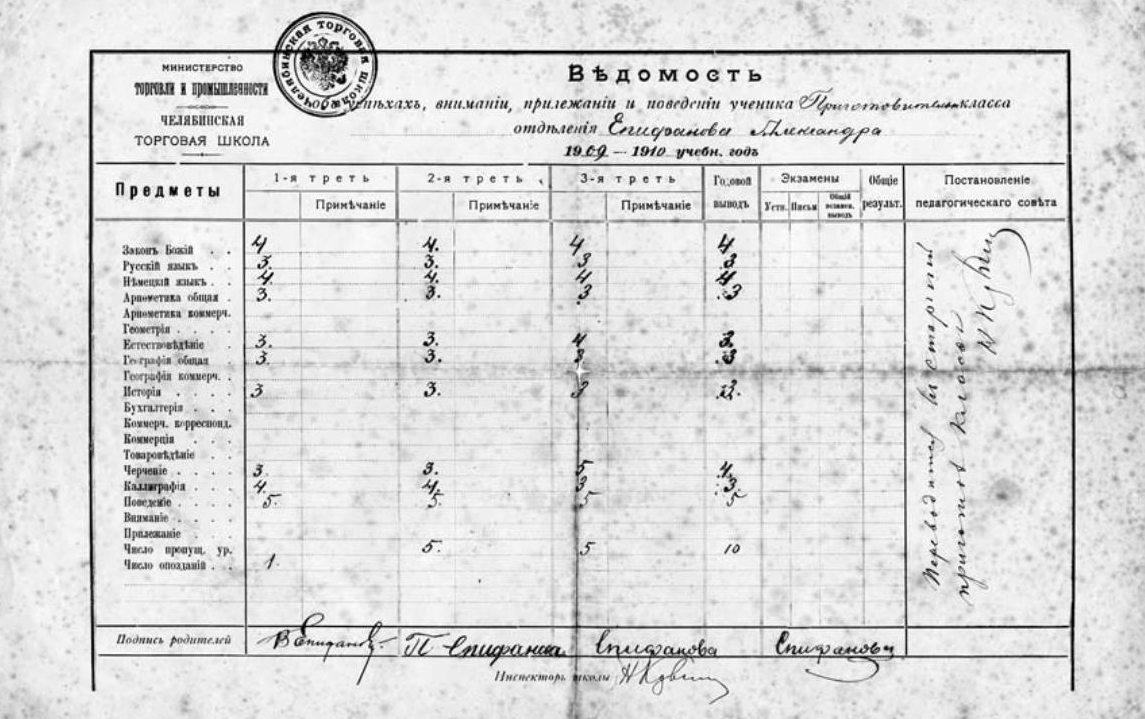 ЧЕЛЯБИНСКАЯ ТОРГОВАЯ ШКОЛА
МИНИСТЕРСТВО
ТОРГОВЛИ И ПРОМЫШЛЕННОСТИ
ЧЕЛЯБИНСКАЯ
ТОРГОВАЯ ШКОЛА
Вѣдомость
успѣхахъ, вниманіи, прилежаніи и поведеніи ученика Приготовительн класса
отдѣленія Епифанова Александра
1909 — 1910 учебн. годъ
Предметы 1-я треть 2-я треть 3-я треть Годовой выводъ Экзамены Общіе результ. Постановленіе педагогическаго совѣта
Примѣчаніе Примѣчаніе Примѣчаніе Устн. Письм Общій выводъ
Законъ Божій . . 4 4. 4 4
Русскій языкъ . . 3. 3. 3 3
Нѣмецкій языкъ . . 4. 4. 4 4
Арнометика общая . 3. 3. 3 3
Арнометика коммерч.
Геометрія . . . .
Естествовѣдѣніе . 3. 3. 4 3.
Географія общая . 3. 3. 3 3
Географія коммерч. .
Исторія . . . . 3 3. 3 3.
Бухгалтерія . . .
Коммерч. корреспонд.
Коммерція . . .
Товаровѣдѣніе . .
Черченіе . . . . 3. 3. 5 4.
Каллиграфія . . . 4. 4. 3 3.
Поведеніе . . . . 5. 5. 5 5
Вниманіе . . . .
Прилежаніе . . .
Число пропущ. ур. 5. 5 10
Число опозданій . . 1.
Переводится въ старшій
приготов классъ
Н Кув
Подпись родителей В Епифановъ П Епифанова Епифанова Епифанова
Инспекторъ школы